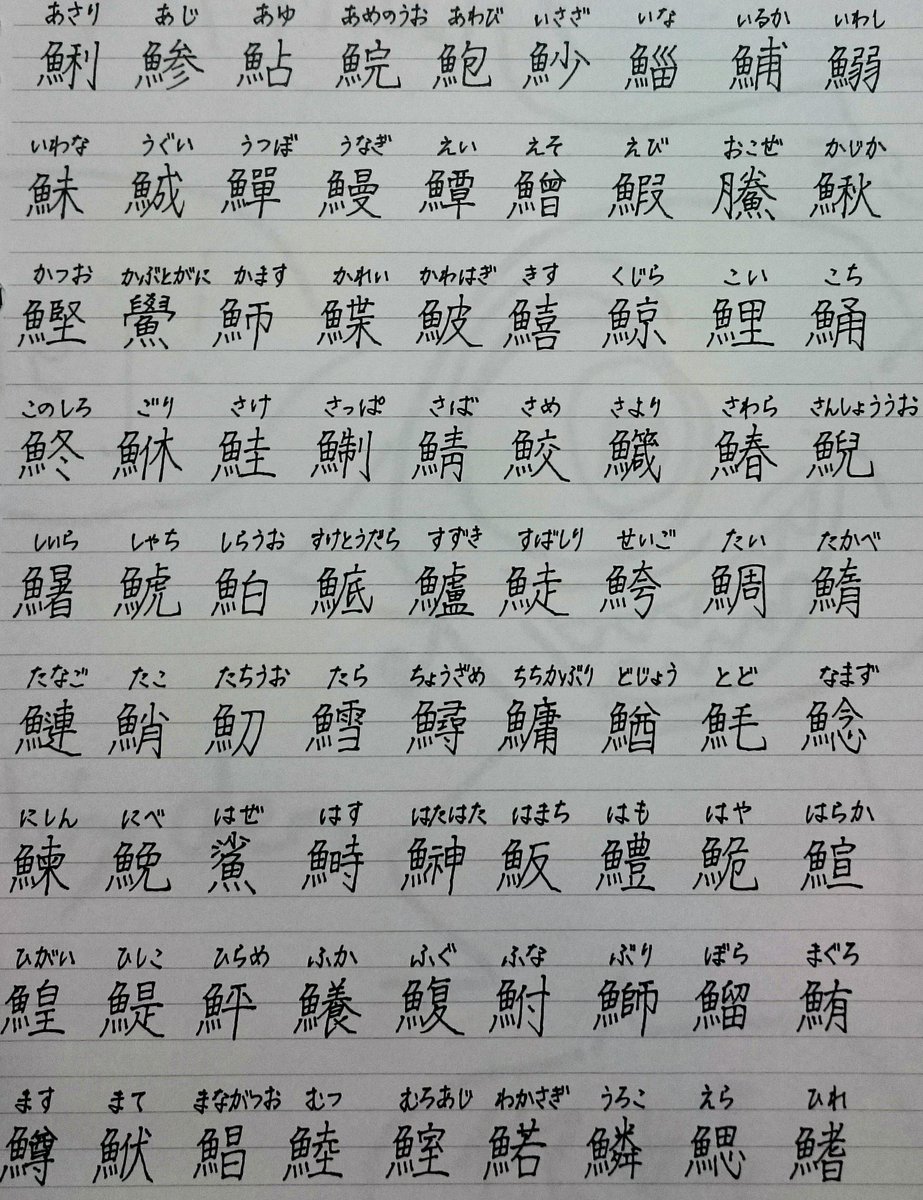 あさり あじ あゆ あめのうお あわび いさざ いな いるか いわし
鯏 鯵 鮎 鯇 鮑 魦 鯔 鯆 鰯
いわな うぐい うつぼ うなぎ えい えそ えび おこぜ かじか
鮇 鯎 鱓 鰻 鱏 鱛 鰕 鰧 鰍
かつお かぶとがに かます かれい かわはぎ きす くじら こい こち
鰹 鱟 魳 鰈 鮍 鱚 鯨 鯉 鯒
このしろ ごり さけ さっぱ さば さめ さより さわら さんしょううお
鮗 鮴 鮭 鯯 鯖 鮫 鱵 鰆 鯢
しいら しゃち しらうお すけとうだら すずき すばしり せいご たい たかべ
鱪 鯱 鮊 鯳 鱸 鯐 鮬 鯛 鰖
たなご たこ たちうお たら ちょうざめ ちちかぶり どじょう とど なまず
鰱 鮹 魛 鱈 鱘 鱅 鰌 魹 鯰
にしん にべ はぜ はす はたはた はまち はも はや はらか
鰊 鮸 鯊 鰣 鰰 魬 鱧 鮠 鰚
ひがい ひしこ ひらめ ふか ふぐ ふな ぶり ぼら まぐろ
鰉 鯷 鮃 鱶 鰒 鮒 鰤 鰡 鮪
ます まて まながつお むつ むろあじ わかさぎ うろこ えら ひれ
鱒 鮲 鯧 鯥 鰘 鰙 鱗 鰓 鰭